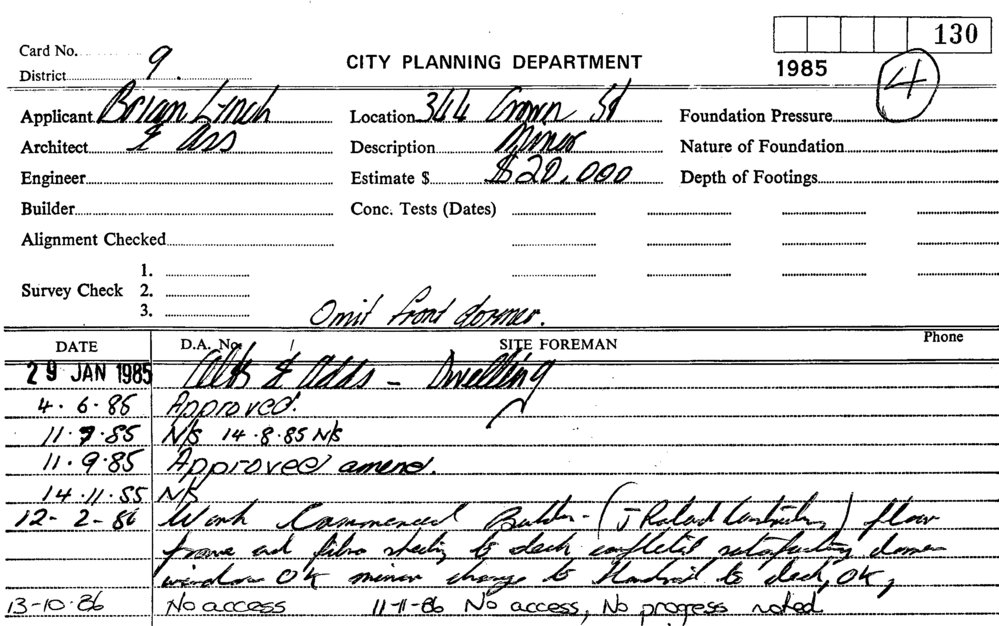 130
Card No. 9
CITY PLANNING DEPARTMENT
District
1985
4
Applicant Brian Lynch
Location 344 Crown St
Foundation Pressure
Architect & Ass
Description Minor
Nature of Foundation
Engineer
Estimate $ $20,000
Depth of Footings
Builder
Conc. Tests (Dates)
Alignment Checked
1.
Survey Check 2.
3.
Omit front dormer.
DATE D.A. No. SITE FOREMAN Phone
29 JAN 1985 Alts & Adds - Dwelling
4.6.85 Approved.
11.7.85 N/S 14.8.85 N/S
11.9.85 Approved amend.
14.11.85 N/S
12-2-86 Work Commenced Builder - (J Roland ) floor
frame and fibro sheeting to deck completed satisfactory dormer
window OK minor change to Handrail to deck, OK,
13-10-86 No access 11-11-86 No access, No progress noted